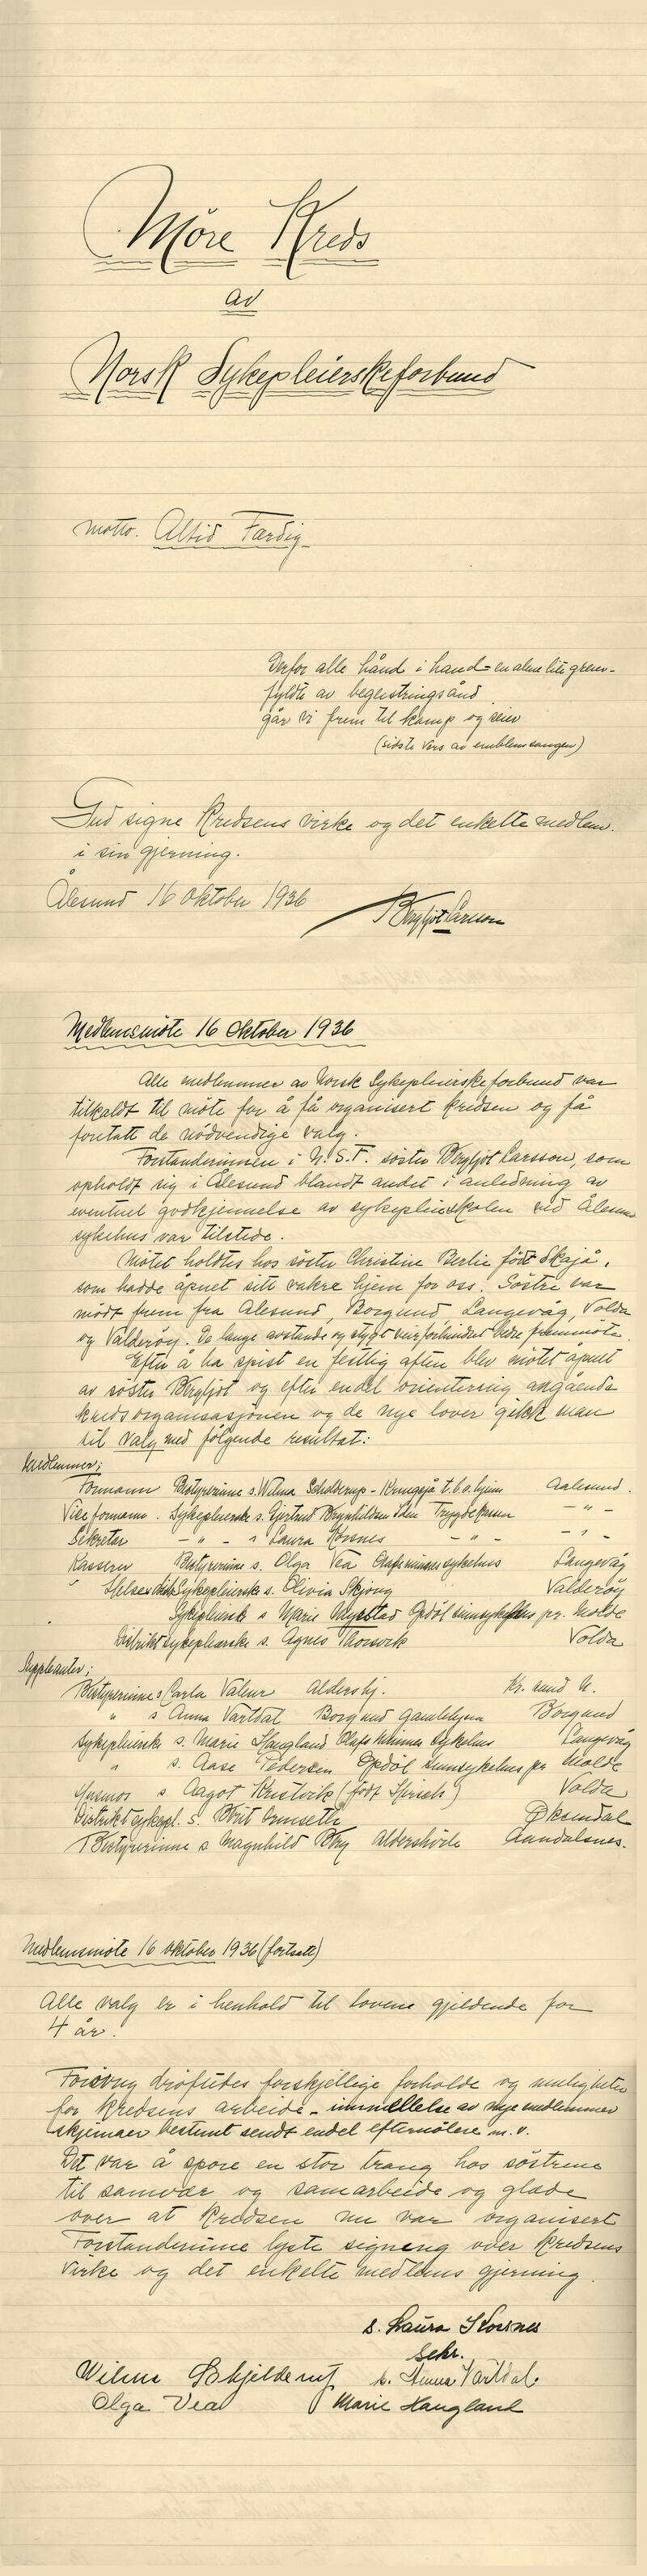 Möre Kreds
av
Norsk Sykepleierskeforbund
Motto. Altid Færdig
Derfor alle hånd i hand = en alme lite grenn -
fyldte av begeistringsånd
går vi frem til kamp og seier
(sidste vers av emblemsangen)
Gud signe Kredsens virke og det enkelte medlem.
i sin gjerning.
Ålesund 16 oktober 1936
Bergljot Larsson
Medlemsmöte 16 Oktober 1936
Alle medlemmer av Norsk Sykepleierskeforbund var
tilkaldt til möte for å få organisert kredsen og få
foretatt de nödvendige valg.
Forstanderinnen i N.S.F. söster Bergljot Larsson, som
opholdt sig i Ålesund blandt andet i anledning av
eventuel godkjennelse av sykepleieskolen ved Ålesund
sykehus var tilstede.
Mötet holdtes hos söster Christine Berlie födt Skajå.
som hadde åpnet sitt vakre hjem for oss. Söstre var
mödt frem fra Ålesund, Borgund, Langevåg, Volda
og Valderöy. De lange avstande og stygt veir forhindret bedre fremmöte.
Efter å ha spist en festlig aften blev mötet åpnet
av söster Bergljot og efter endel orientering angående
kredsorganisasjonen og de nye lover gikk man
til valg med følgende resultat:
Medlemmer;
Formann Bestyrerinne s. Wilma Schelderup - t.b.c. hjem Aalesund.
Viseformann. Sykepleierske s. Gjertrud Brynhildsen Trygdekassen - " -
Sekretær - " - s Laura Korsnes - " - - " -
Kasserer Bestyrerinne s. Olga Vea sykehus Langevåg
Sykepleierske s. Olivia Skjong Valderöy
Sykepleiersk s Marie Myrstad Opdöl sinnsykehus pr. Molde
Distriktsykepleierske s. Agnes Thorsvik Volda
Suppleanter;
Bestyrerinne s Carla Valeur Aldershj. Kr. sund N.
" s Anna Vartdal Borgund Gamlehjem Borgund
Sykepleierske s. Marie Haugland Olafs Minne Sykehus Langevåg
" s. Aase Pedersen Opdöl sinnsykehus pr Molde
Husmor s Aagot Kristvik (födt Hirsch) Volda
Distriktsykepl. s. Brit Øksendal
Bestyrerinne s Magnhild Berg Aldershvile Aandalsnes.
Medlemsmöte 16 oktober 1936 (fortsatt)
Alle valg er i henhold til lovene gjeldende for
4 år.
Forövrig dröftedes forskjellige forholde og muligheter
for kredsens arbeide - innmeldelse av nye medlemmer
skjemaer bestemt sendt endel efternölere m. v.
Det var å spore en stor trang hos söstrene
til samvær og samarbeide og glæde
over at kredsen nu var organisert
Forstanderinne lyste signing over kredsens
virke og det enkelte medlems gjerning.
s. Laura Korsnes
Sekr.
Wilma Schjelderup s. Anna Vartdal
Olga Vea Marie Haugland